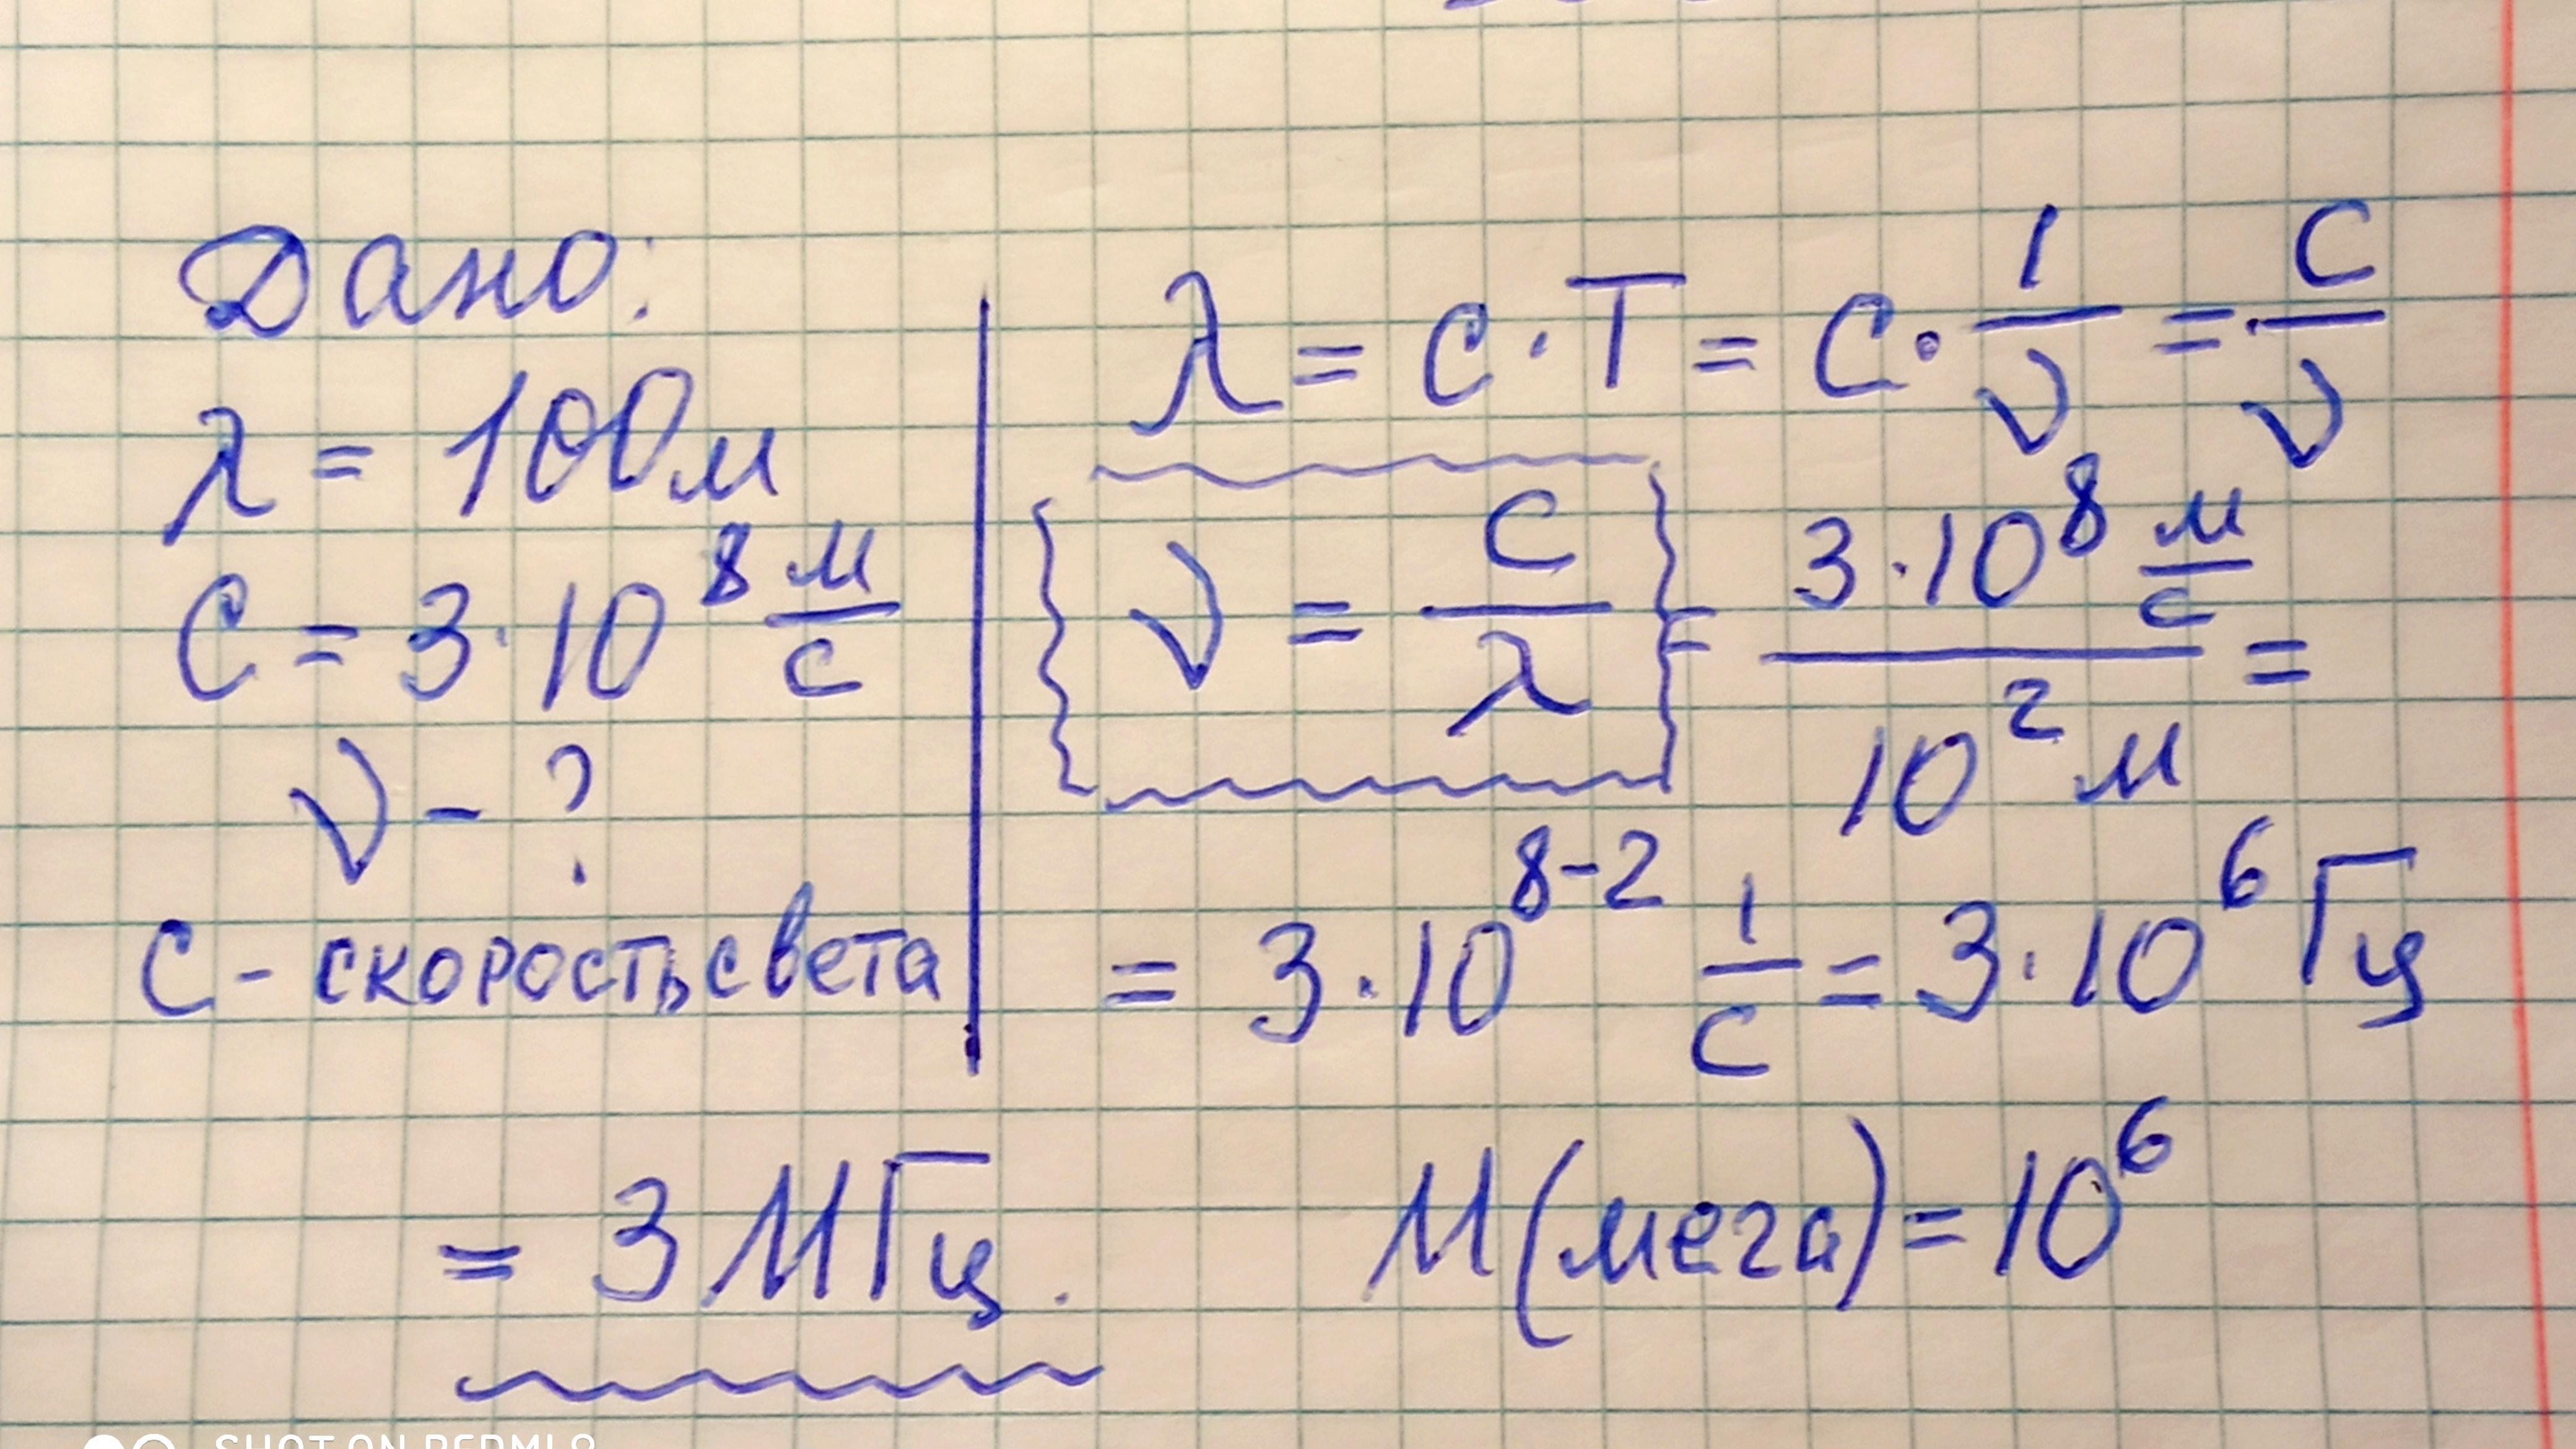 Дано:
λ = 100м
C = 3·10⁸ м/с
ν - ?
C - скорость света
λ = c·T = C·1/ν = C/ν
ν = C/λ = 3·10⁸ м/с / 10² м =
= 3·10⁸⁻² 1/с = 3·10⁶ Гц
= 3 МГц.
М(мега) = 10⁶